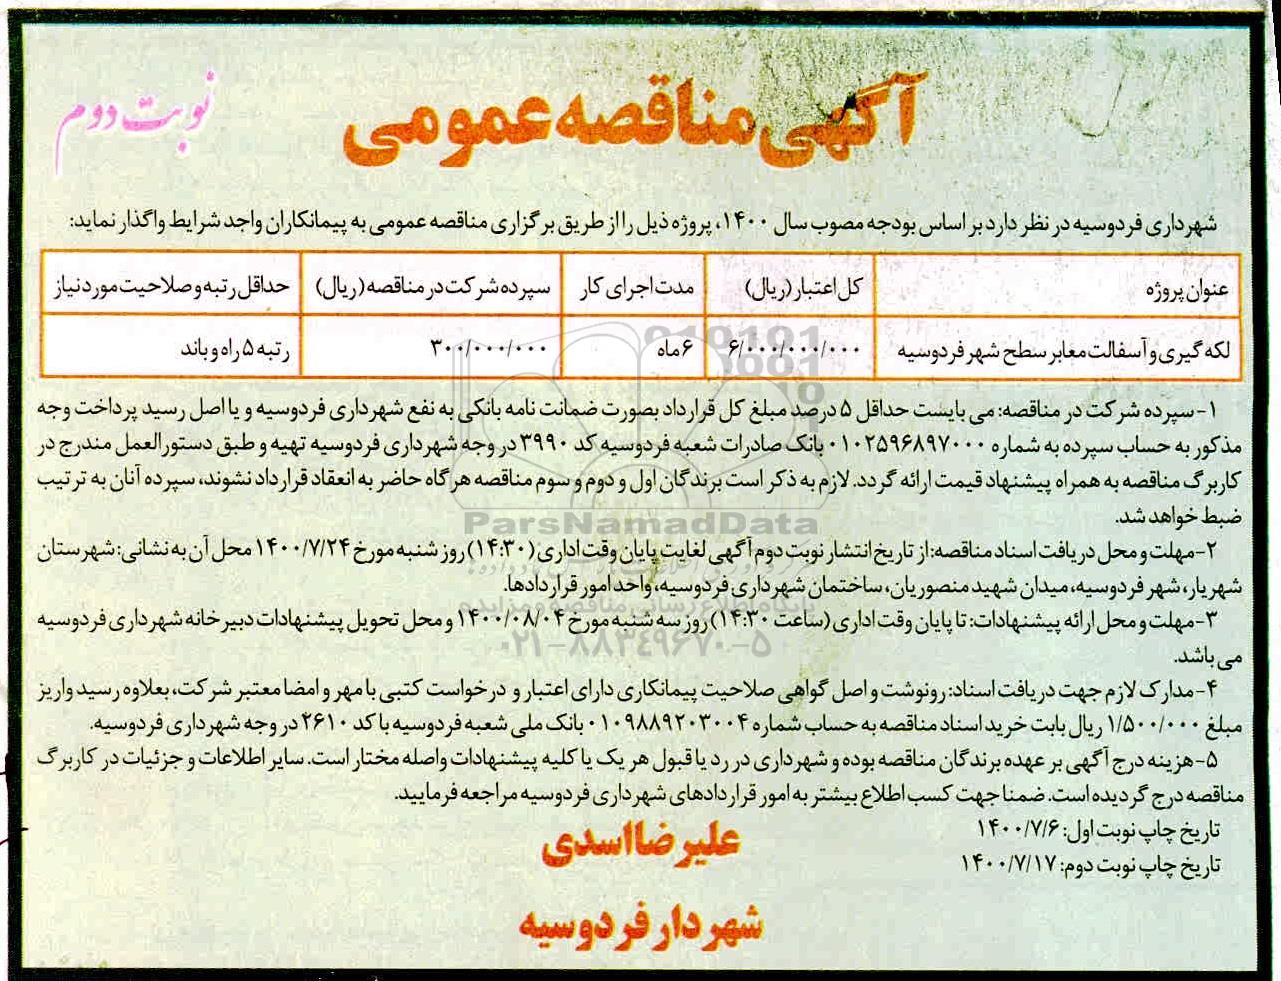 نوبت دوم
آگهی مناقصه عمومی
شهرداری فردوسیه در نظر دارد بر اساس بودجه مصوب سال ۱۴۰۰، پروژه ذیل را از طریق برگزاری مناقصه عمومی به پیمانکاران واجد شرایط واگذار نماید:
عنوان پروژه	کل اعتبار (ریال)	مدت اجرای کار	سپرده شرکت در مناقصه (ریال)	حداقل رتبه و صلاحیت مورد نیاز
لکه گیری و آسفالت معابر سطح شهر فردوسیه	۶/۰۰۰/۰۰۰/۰۰۰	۶ ماه	۳۰۰/۰۰۰/۰۰۰	رتبه ۵ راه و باند
۱- سپرده شرکت در مناقصه: می بایست حداقل ۵ درصد مبلغ کل قرارداد بصورت ضمانت نامه بانکی به نفع شهرداری فردوسیه و یا اصل رسید پرداخت وجه
مذکور به حساب سپرده به شماره ۰۱۰۲۵۹۶۸۹۷۰۰۰ بانک صادرات شعبه فردوسیه کد ۳۹۹۰ در وجه شهرداری فردوسیه تهیه و طبق دستورالعمل مندرج در
کاربرگ مناقصه به همراه پیشنهاد قیمت ارائه گردد. لازم به ذکر است برندگان اول و دوم و سوم مناقصه هرگاه حاضر به انعقاد قرارداد نشوند، سپرده آنان به ترتیب
ضبط خواهد شد.
۲- مهلت و محل دریافت اسناد مناقصه: از تاریخ انتشار نوبت دوم آگهی لغایت پایان وقت اداری (۱۴:۳۰) روز شنبه مورخ ۱۴۰۰/۷/۲۴ محل آن به نشانی: شهرستان
شهریار، شهر فردوسیه، میدان شهید منصوریان، ساختمان شهرداری فردوسیه، واحد امور قراردادها.
۳- مهلت و محل ارائه پیشنهادات: تا پایان وقت اداری (ساعت ۱۴:۳۰) روز سه شنبه مورخ ۱۴۰۰/۰۸/۰۴ و محل تحویل پیشنهادات دبیرخانه شهرداری فردوسیه
می باشد.
۴- مدارک لازم جهت دریافت اسناد: رونوشت و اصل گواهی صلاحیت پیمانکاری دارای اعتبار و درخواست کتبی با مهر و امضا معتبر شرکت، بعلاوه رسید واریز
مبلغ ۱/۵۰۰/۰۰۰ ریال بابت خرید اسناد مناقصه به حساب شماره ۰۱۰۹۸۸۹۲۰۳۰۰۴ بانک ملی شعبه فردوسیه با کد ۲۶۱۰ در وجه شهرداری فردوسیه.
۵- هزینه درج آگهی بر عهده برندگان مناقصه بوده و شهرداری در رد یا قبول هر یک یا کلیه پیشنهادات واصله مختار است. سایر اطلاعات و جزئیات در کاربرگ
مناقصه درج گردیده است. ضمنا جهت کسب اطلاع بیشتر به امور قراردادهای شهرداری فردوسیه مراجعه فرمایید.
تاریخ چاپ نوبت اول: ۱۴۰۰/۷/۶
تاریخ چاپ نوبت دوم: ۱۴۰۰/۷/۱۷
علیرضا اسدی
شهردار فردوسیه
ParsNamadData
پایگاه اطلاع رسانی مناقصه و مزایده
۰۲۱-۸۸۳۴۹۶۷۰-۵